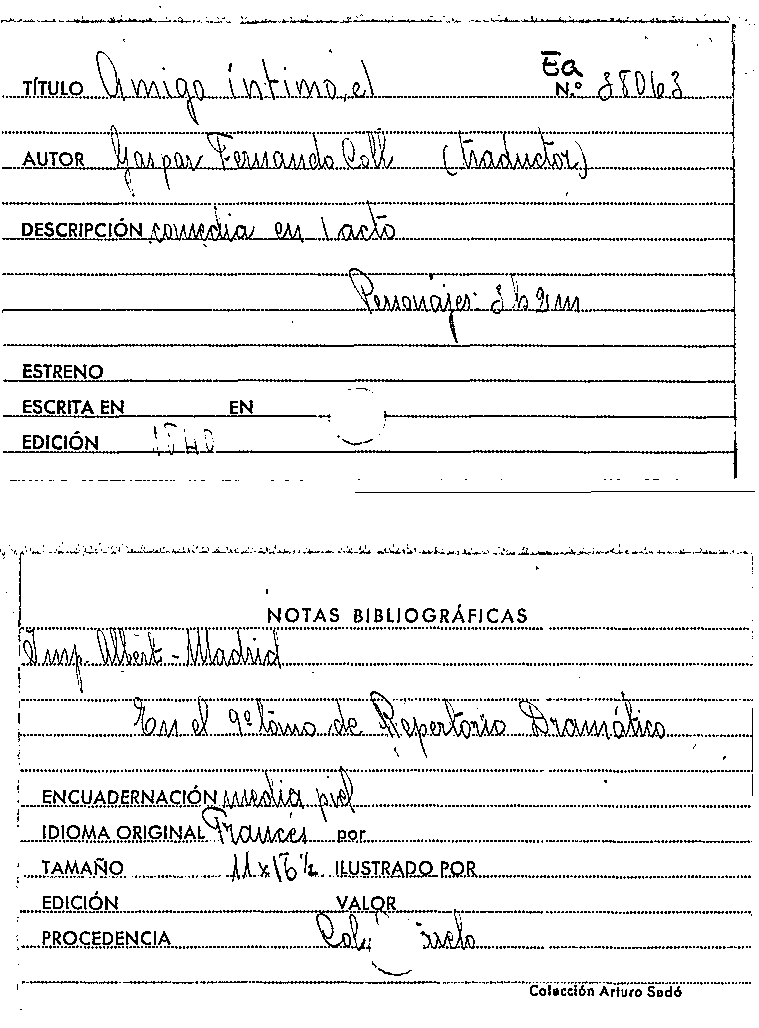 Ea
TÍTULO Amigo íntimo, el N.º 38063
AUTOR Gaspar Fernando Coll (traductor)
DESCRIPCIÓN comedia en 1 acto
Personajes: 3h 2m
ESTRENO
ESCRITA EN EN
EDICIÓN 1840
NOTAS BIBLIOGRÁFICAS
Imp. Albert - Madrid
En el 9º tomo de Repertorio Dramático
ENCUADERNACIÓN media piel
IDIOMA ORIGINAL Francés por
TAMAÑO 11 x 16 ½ ILUSTRADO POR
EDICIÓN VALOR
PROCEDENCIA
Colección Arturo Sedó